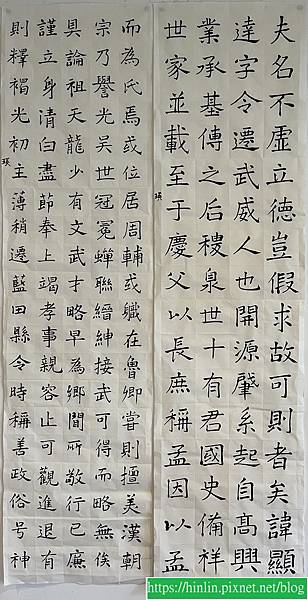 夫名不虛立德豈假求故可則者矣諱顯
達字令遷武威人也開源肇系起自高興
業承基傳之后稷泉世十有君國史備祥
世家並載至于慶父以長庶稱孟因以孟
瑛
而為氏焉或位居周輔或軄在魯卿嘗則擅美漢朝
宗乃譽光吳世冠冕蟬聯縉紳接武可得而略無俟
具論祖天龍少有文武才略早為鄉閭所敬行已廉
謹立身清白盡節奉上竭孝事親容止可觀進退有
則釋褐光初主薄稍遷藍田縣令時稱善政俗号神
瑛
https://hinlin.pixnet.net/blog